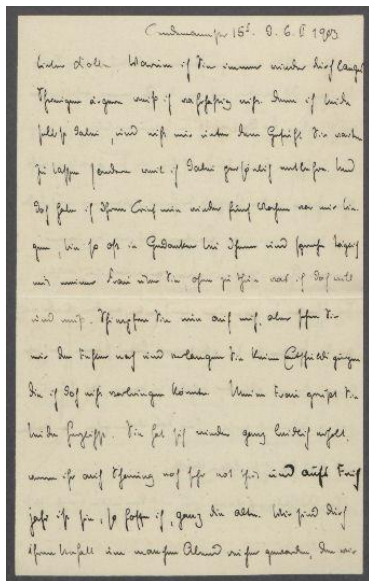 15I. d. 6. II 1903
Lieber Warum ich Sie immer wieder durch langes
Schweigen ärgere weiß ich wahrhaftig nicht. Denn ich leide
selbst dabei, und nicht nur unter dem Gefühl Sie warten
zu lassen sondern weil ich dabei persönlich entbehre. Und
doch habe ich Ihren Brief nun wieder fünf Wochen vor mir lie-
gen, bin so oft in Gedanken bei Ihnen und spreche täglich
mit meiner Frau über Sie ohne zu thun was ich doch will
und muß. Schimpfen Sie nur auf mich, aber sehen Sie
mir den Fehler nach und verlangen Sie keine Entschuldigungen
die ich doch nicht vorbringen könnte. Meine Frau grüßt Sie
beide herzlichst. Sie hat sich wieder ganz leidlich erholt,
wenn ihr auch Schonung noch sehr not thut und aufs Früh
jahr ist sie, so hoffe ich, ganz die alte. Wir sind durch
Ihren Unfall um manchen Abend geworden, den wir